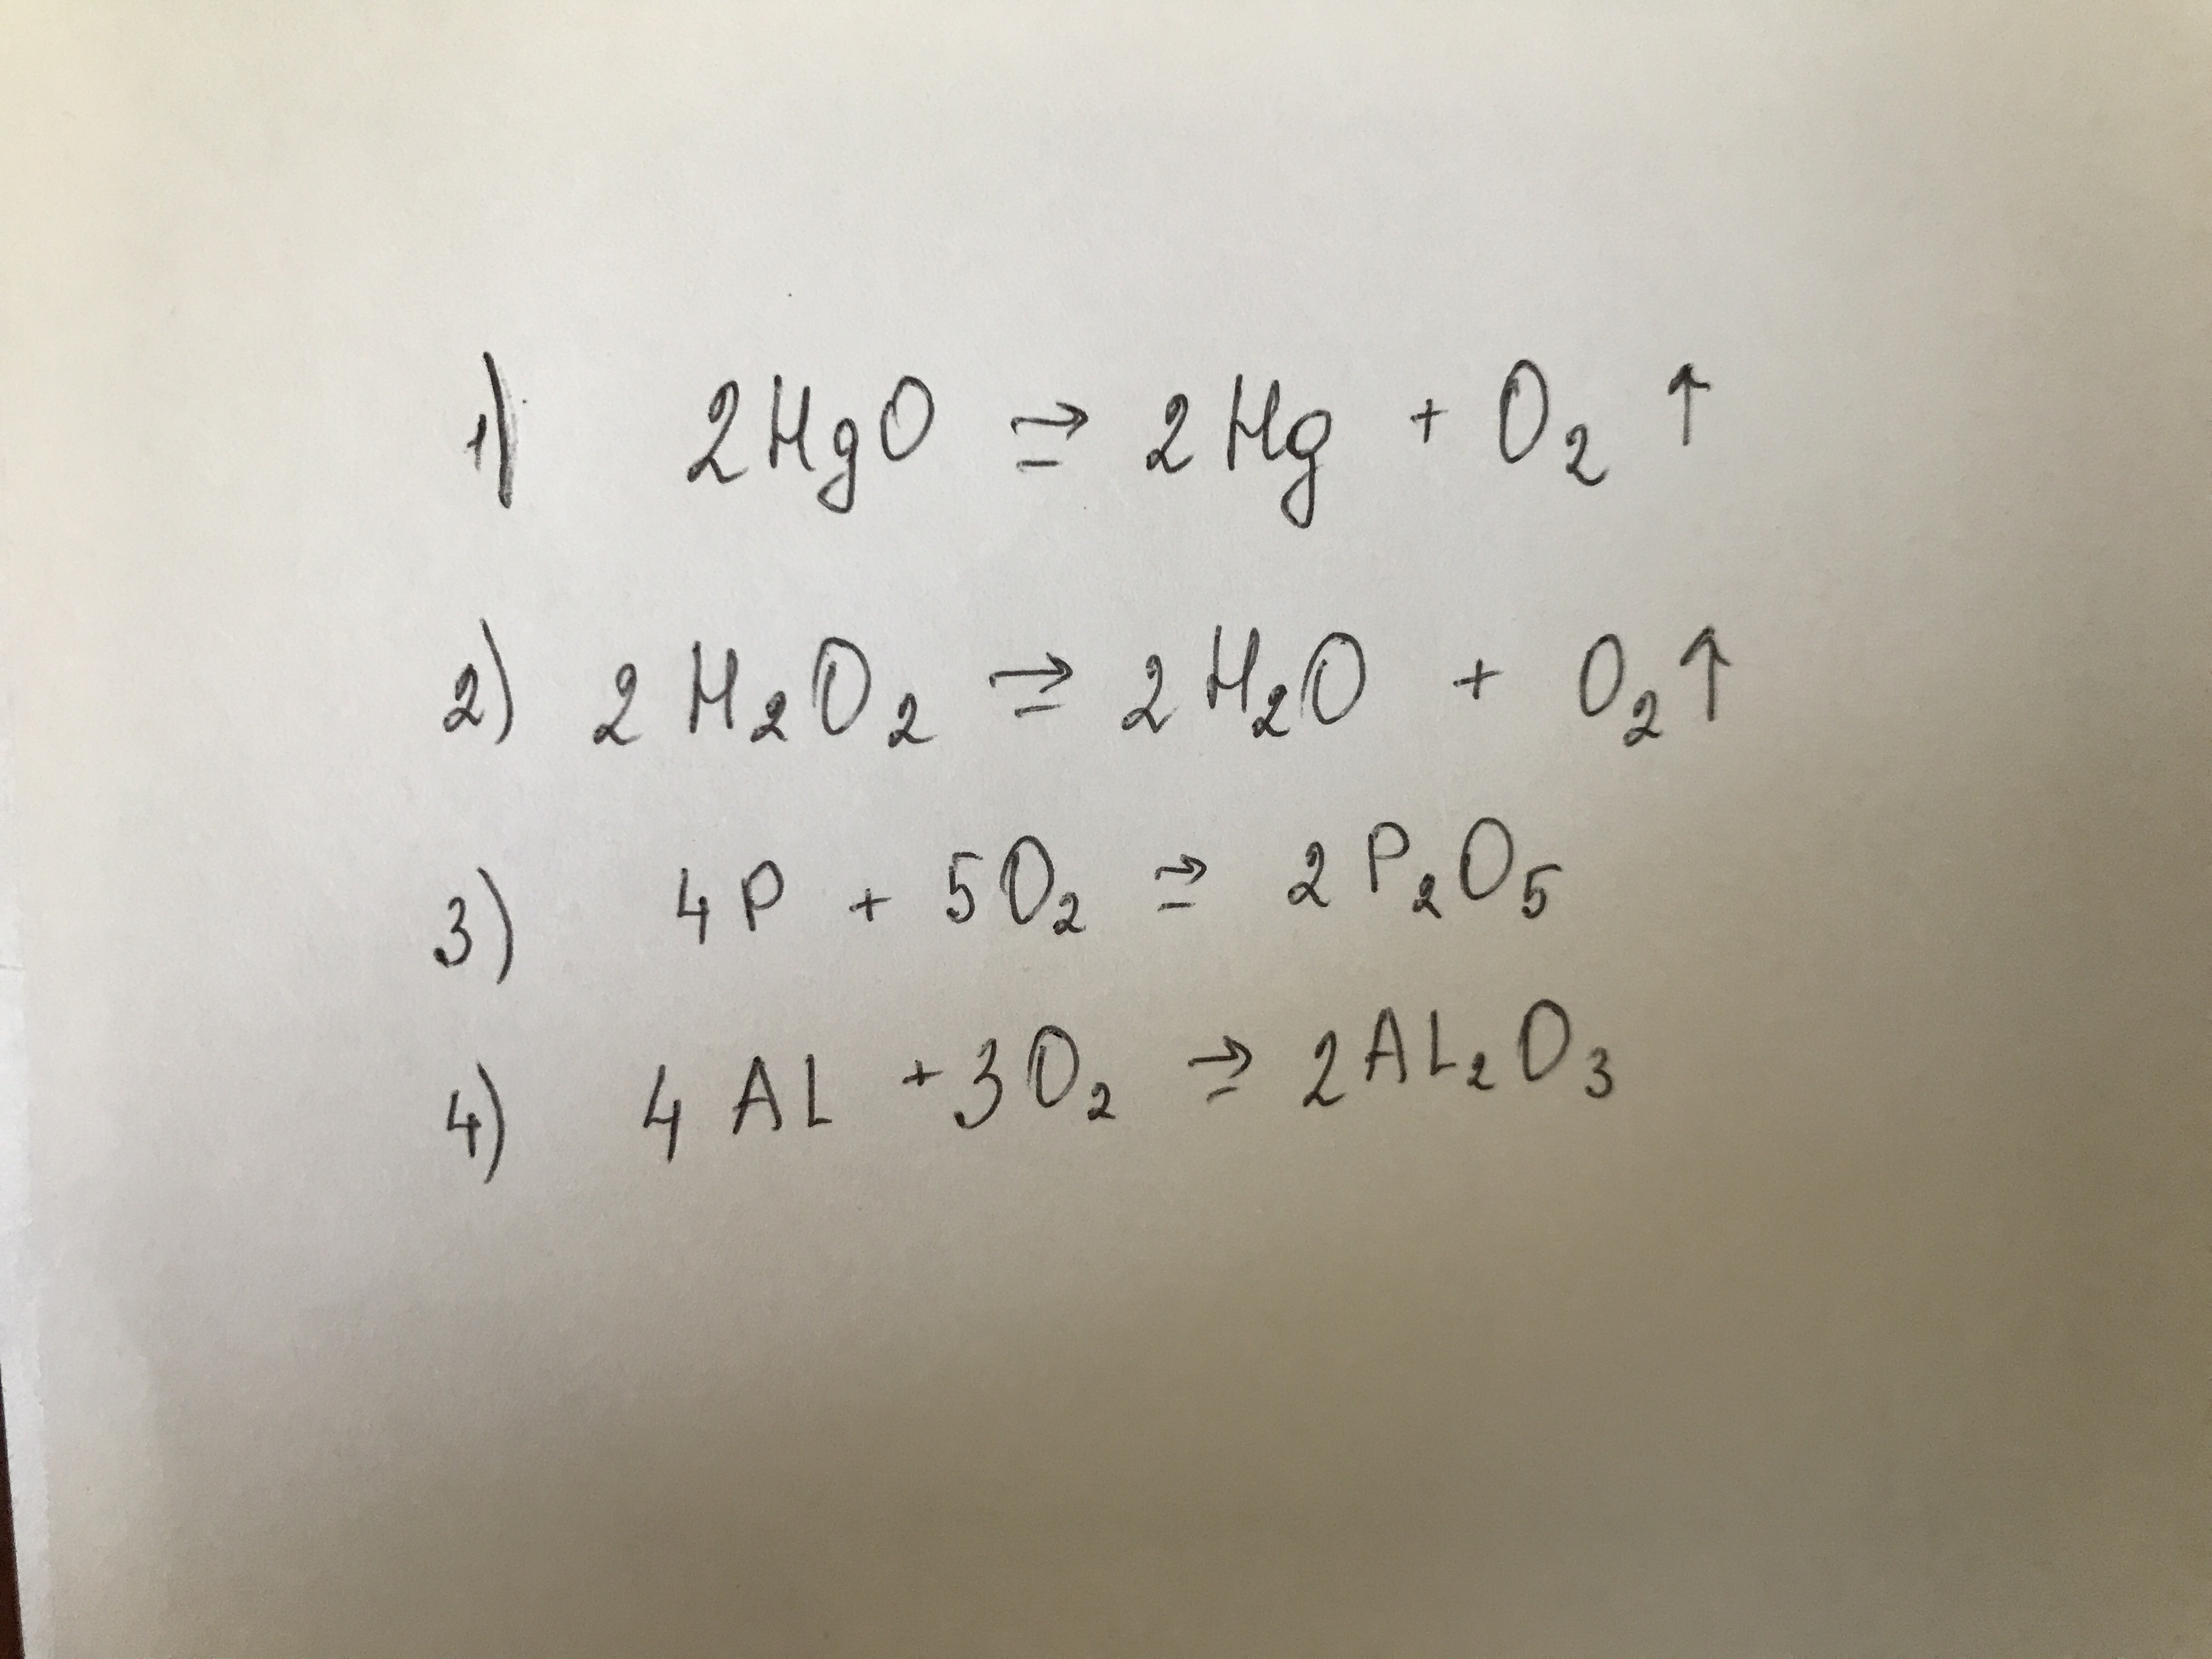 1) 2HgO ⇒ 2Hg + O₂ ↑
2) 2H₂O₂ ⇒ 2H₂O + O₂ ↑
3) 4P + 5O₂ ⇒ 2P₂O₅
4) 4AL + 3O₂ ⇒ 2AL₂O₃